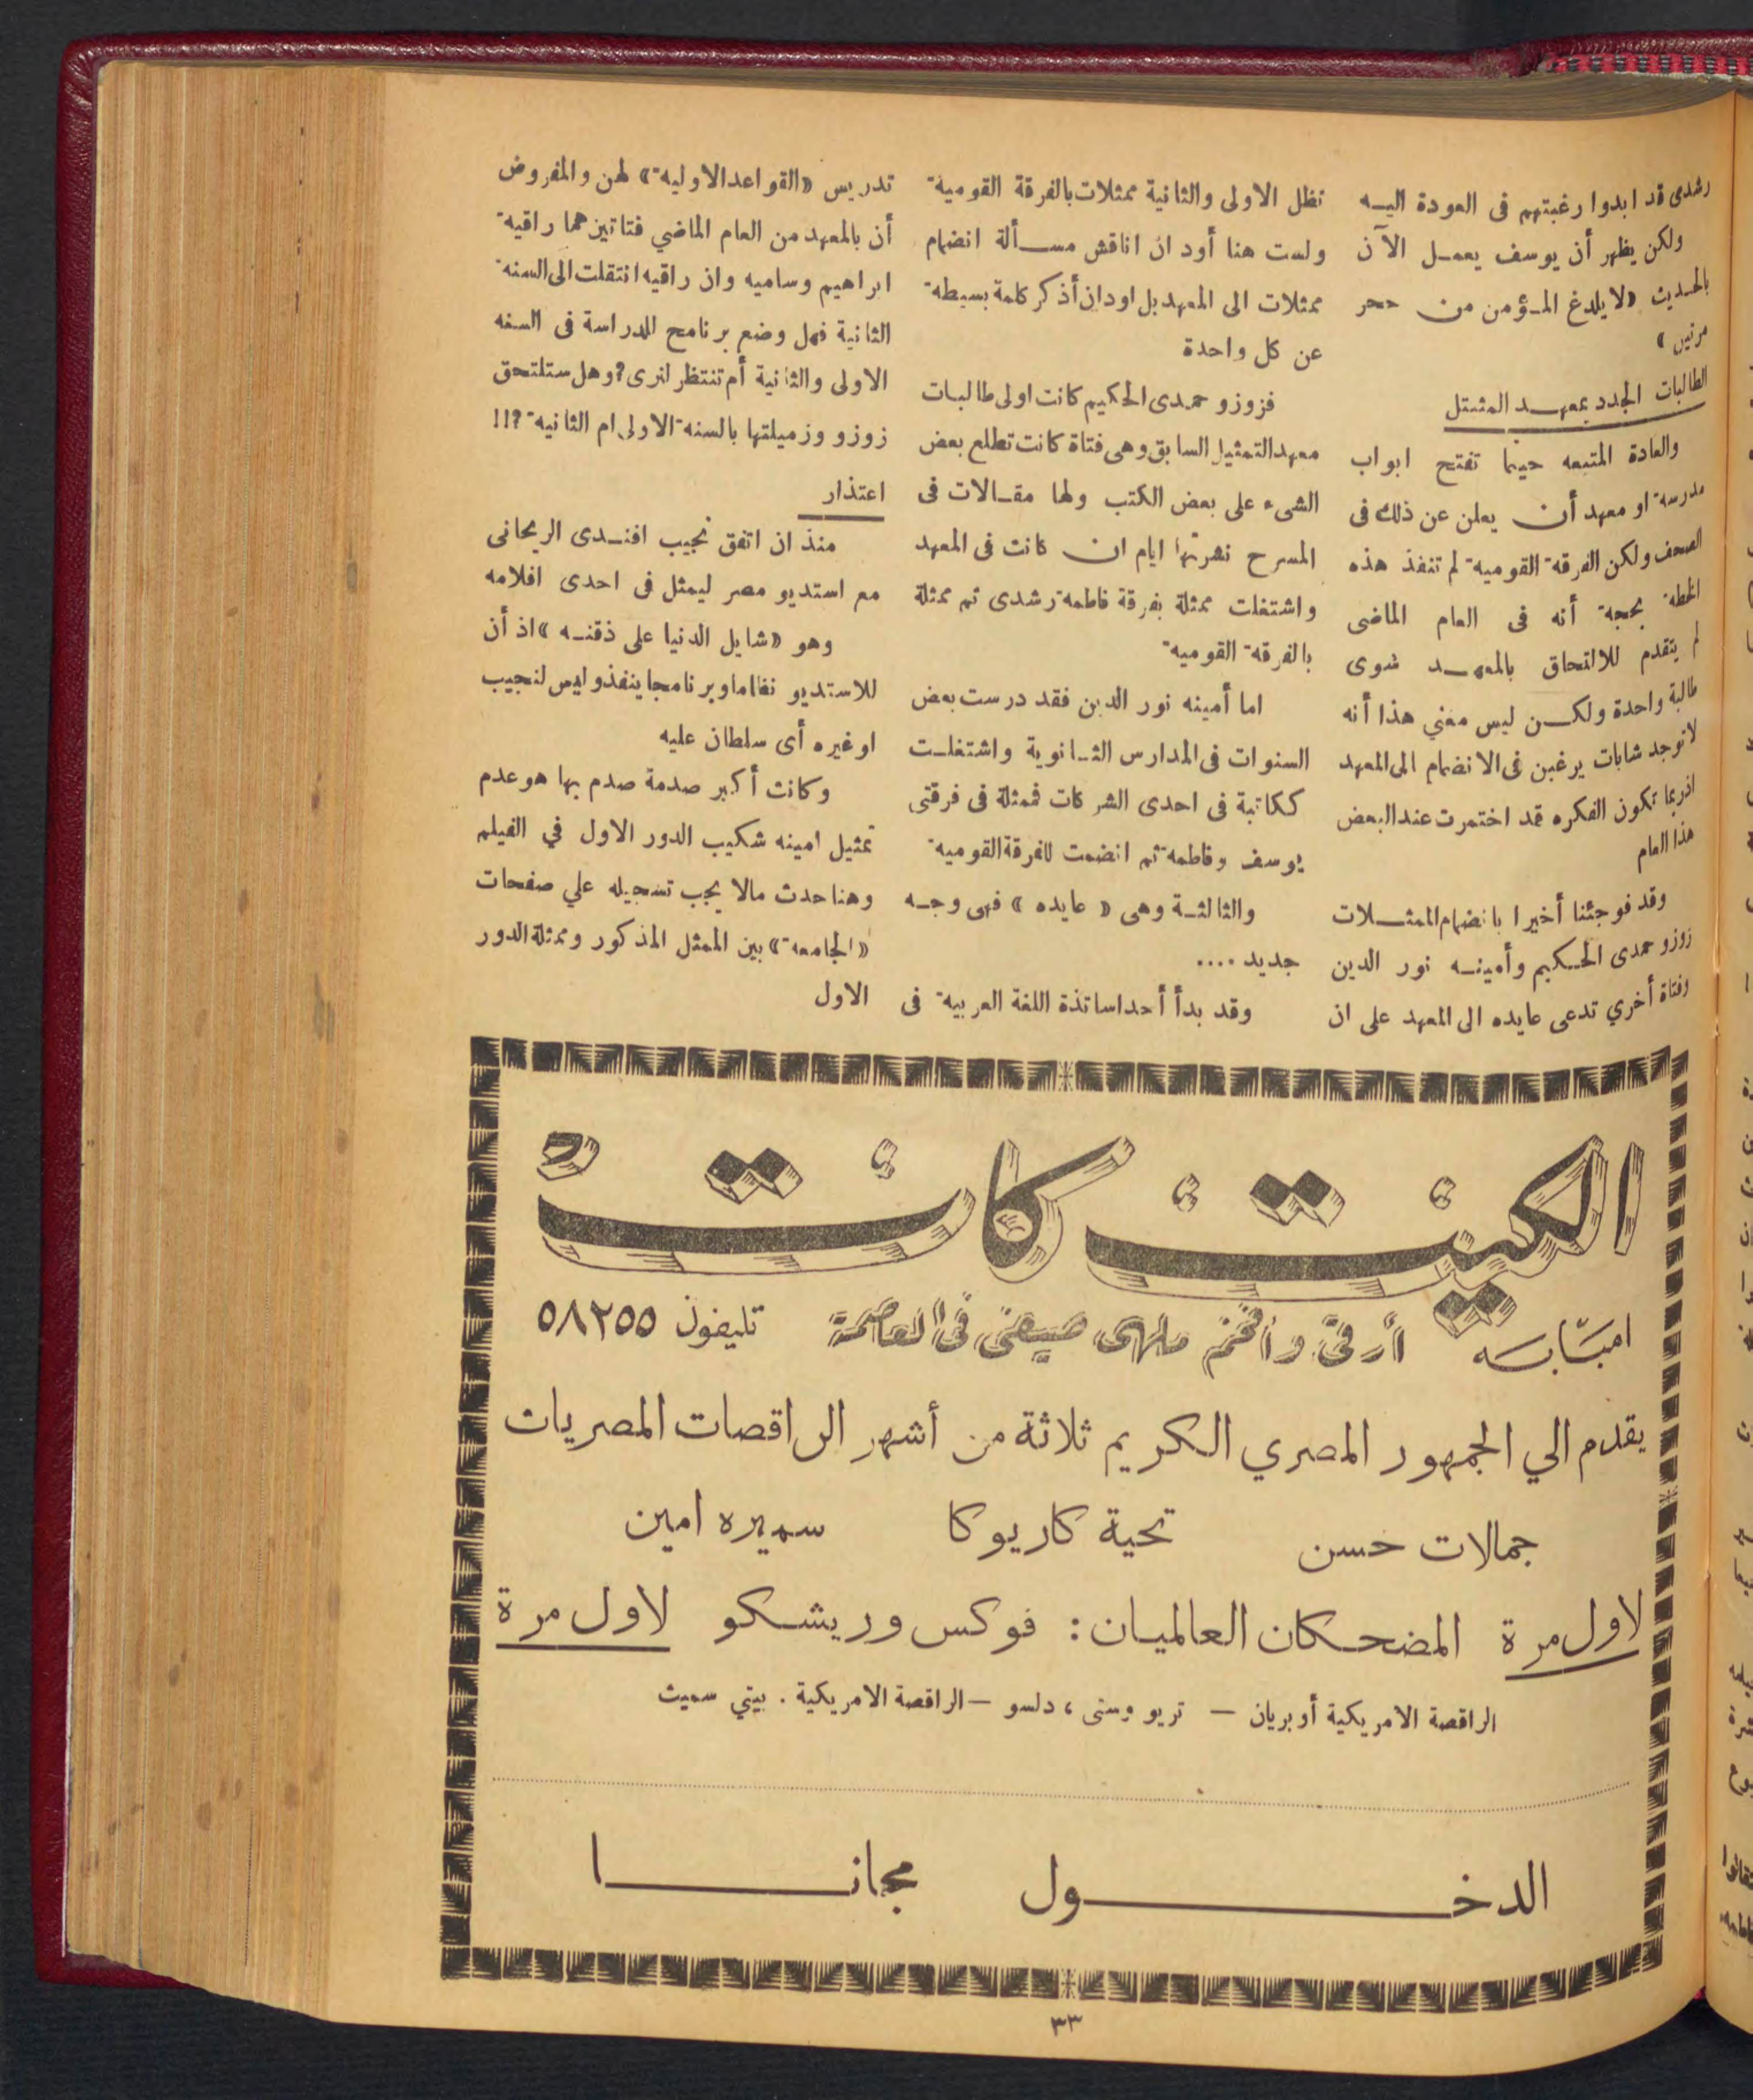 رشدى قد ابدوا رغبتهم فى العودة اليه
ولكن يظهر أن يوسف يعمل الآن
بالحديث «لا يلدغ المؤمن من جحر
مرتين»
الطالبات الجدد بمعهد التمثيل
والعادة المتبعه حينما تفتح ابواب
مدرسة او معهد أن يعلن عن ذلك فى
الصحف ولكن الفرقة القومية لم تنفذ هذه
الخطة بحجة أنه فى العام الماضى
لم يتقدم للالتحاق بالمعهد سوى
طالبة واحدة ولكن ليس معني هذا أنه
لا توجد شابات يرغبن فى الانضمام الى المعهد
اذ ربما تكون الفكره قد اختمرت عند البعض
هذا العام
وقد فوجئنا أخيرا بانضمام الممثلات
زوزو حمدى الحكيم وأمينه نور الدين
وفتاة أخري تدعى عايده الى المعهد على ان
تظل الاولى والثانية ممثلات بالفرقة القومية
ولست هنا أود ان اناقش مسألة انضمام
ممثلات الى المعهد بل اود ان أذكر كلمة بسيطة
عن كل واحدة
فزوزو حمدى الحكيم كانت اولى طالبات
معهد التمثيل السابق وهى فتاة كانت تطلع بعض
الشىء على بعض الكتب ولها مقالات فى
المسرح نشرتها ايام ان كانت فى المعهد
واشتغلت ممثلة بفرقة فاطمة رشدى ثم ممثلة
بالفرقة القومية
اما أمينه نور الدين فقد درست بعض
السنوات فى المدارس الثانوية واشتغلت
ككاتبة فى احدى الشركات فممثلة فى فرقتى
يوسف وفاطمة ثم انضمت للفرقة القومية
والثالثة وهى «عايده» فهى وجه
جديد ....
وقد بدأ أحد اساتذة اللغة العربية فى
تدريس «القواعد الاولية» لهن والمفروض
أن بالمعهد من العام الماضي فتاتين هما راقية
ابراهيم وساميه وان راقيه انتقلت الى السنة
الثانية فهل وضع برنامج للدراسة فى السنه
الاولى والثانية أم تنتظر لنرى؟ وهل ستلتحق
زوزو وزميلتها بالسنة الاولى ام الثانية ؟!!
اعتذار
منذ ان اتفق نجيب افندى الريحانى
مع استديو مصر ليمثل فى احدى افلامه
وهو «شايل الدنيا على ذقنه» اذ أن
للاستديو نظاما وبرنامجا ينفذ وليس لنجيب
او غيره أى سلطان عليه
وكانت أكبر صدمة صدم بها هو عدم
تمثيل امينه شكيب الدور الاول في الفيلم
وهنا حدث مالا يجب تسجيله علي صفحات
«الجامعة» بين الممثل المذكور وممثلة الدور
الاول
الكيت كات
امبابه أرقى وافخم ملهى صيفى فى العاصمة تليفون ٥٨٢٥٥
يقدم الي الجمهور المصري الكريم ثلاثة من أشهر الراقصات المصريات
جمالات حسن تحية كاريوكا سميره امين
لاول مرة المضحكان العالميان: فوكس وريشكو لاول مرة
الراقصة الامريكية أوبريان — تريو وستى ، دلسو — الراقصة الامريكية . بيتي سميث
الدخول مجانا
٣٣